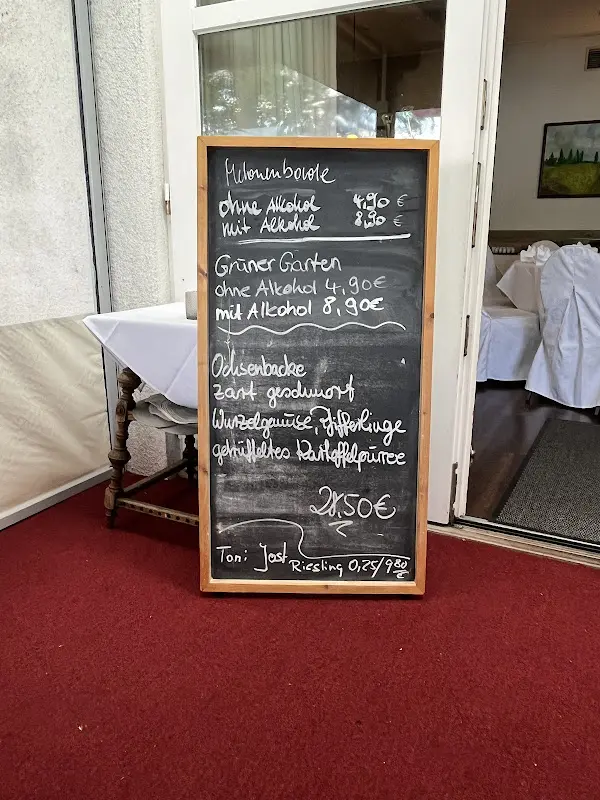 Melonenbowle
ohne Alkohol 4,90 €
mit Alkohol 8,90 €
Grüner Garten
ohne Alkohol 4,90€
mit Alkohol 8,90€
Ochsenbacke
zart geschmort
Wurzelgemüse, Pfifferlinge
getrüffeltes Kartoffelpüree
28,50€
Toni Jost Riesling 0,25/9,80 €